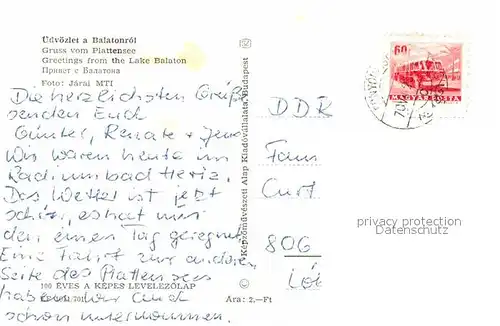 Üdvözlet a Balatonról
Gruss vom Plattensee
Greetings from the Lake Balaton
Привет с Балатона
Foto: Járai MTI
Die herzlichsten Grüße
senden Euch
Günter, Renate + Jens
Wir waren heute im
Radiumbad Heviz.
Das Wetter ist jetzt
schön, es hat nur
den einen Tag geregnet
Eine Fahrt zur anderen
Seite des Plattensees
haben wir auch
schon unternommen.
100 ÉVES A KÉPES LEVELEZŐLAP
Ára: 2,-Ft
Képzőművészeti Alap Kiadóvállalata, Budapest
60
MAGYAR POSTA
DDR
Fam
Curt
806
privacy protection
Datenschutz